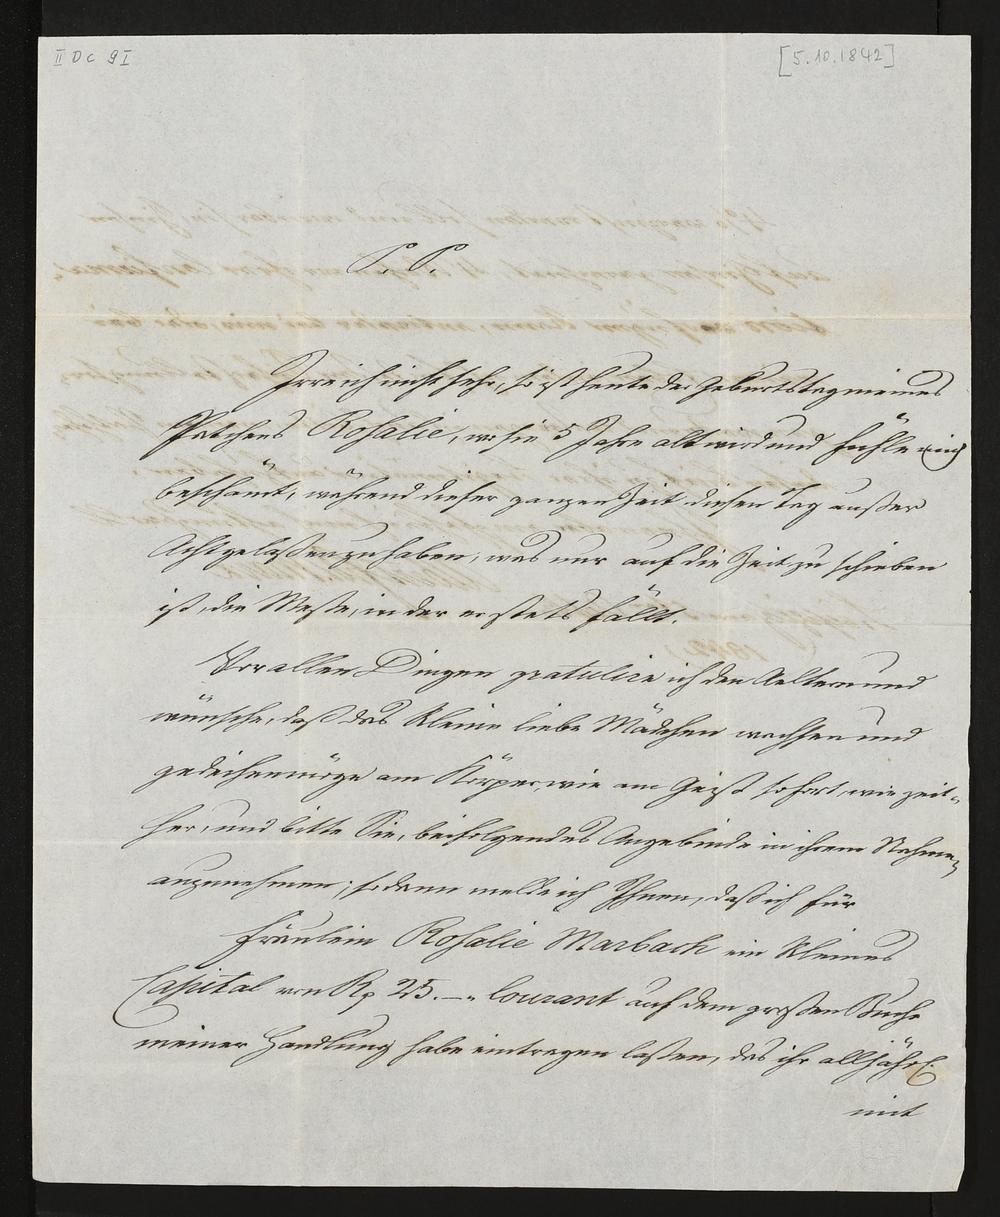 II Dc 9 I
[5.10.1842]
P. P.
Irre ich nicht sehr, so ist heute der Geburtstag meines
Pathchens Rosalie, wo sie 5 Jahre alt wird und fühle mich
beschämt, während dieser ganzen Zeit diesen Tag außer
Acht gelaßen zu haben, was nur auf die Zeit zu schieben
ist, die Meße, in der er stets fällt.
Vor allen Dingen gratulire ich den Aeltern und
wünsche, daß das kleine liebe Mädchen wachsen und
gedeihen möge am Körper, wie am Geist so fort, wie zeit-
her, und bitte Sie, beifolgendes Angebinde in ihrem Nahmen
anzunehmen; sodann melde ich Ihnen, daß ich für
Fräulein Rosalie Marbach ein kleines
Capital von Rp 25.—„ Courant auf dem großen Buche
meiner Handlung habe eintragen laßen, das ihr alljährl.
mit